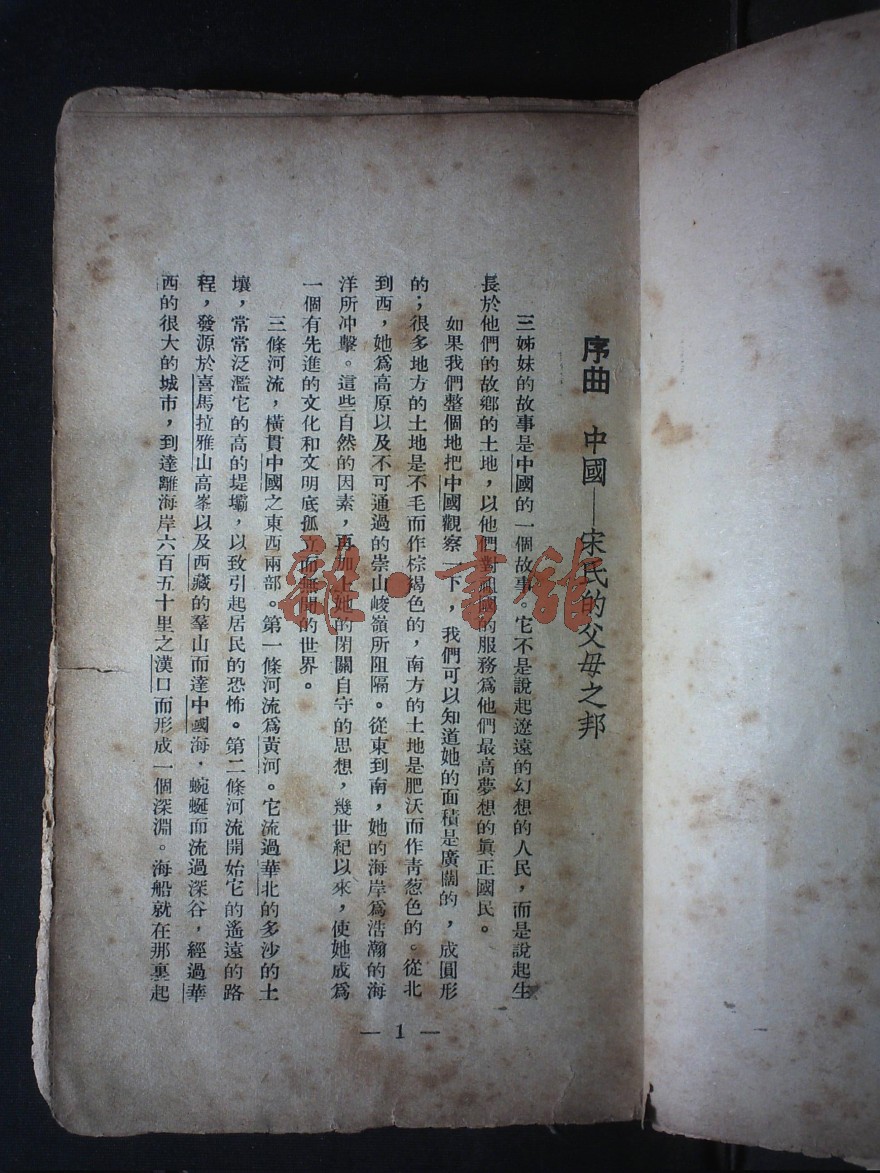 序曲 中國——宋氏的父母之邦
三姊妹的故事是中國的一個故事。它不是說起遼遠的幻想的人民，而是說起生
長於他們的故鄉的土地，以他們對祖國的服務爲他們最高夢想的眞正國民。
如果我們整個地把中國觀察一下，我們可以知道她的面積是廣闊的，成圓形
的；很多地方的土地是不毛而作棕褐色的，南方的土地是肥沃而作靑葱色的。從北
到西，她爲高原以及不可通過的崇山峻嶺所阻隔。從東到南，她的海岸爲浩瀚的海
洋所冲擊。這些自然的因素，再加上她的閉關自守的思想，幾世紀以來，使她成爲
一個有先進的文化和文明底孤立而無聞的世界。
三條河流，橫貫中國之東西兩部。第一條河流爲黃河。它流過華北的多沙的土
壤，常常泛濫它的高的堤壩，以致引起居民的恐怖。第二條河流開始它的遙遠的路
程，發源於喜馬拉雅山高峯以及西藏的羣山而達中國海，蜿蜒而流過深谷，經過華
西的很大的城市，到達離海岸六百五十里之漢口而形成一個深淵。海船就在那裏起
— 1 —
雜·書館